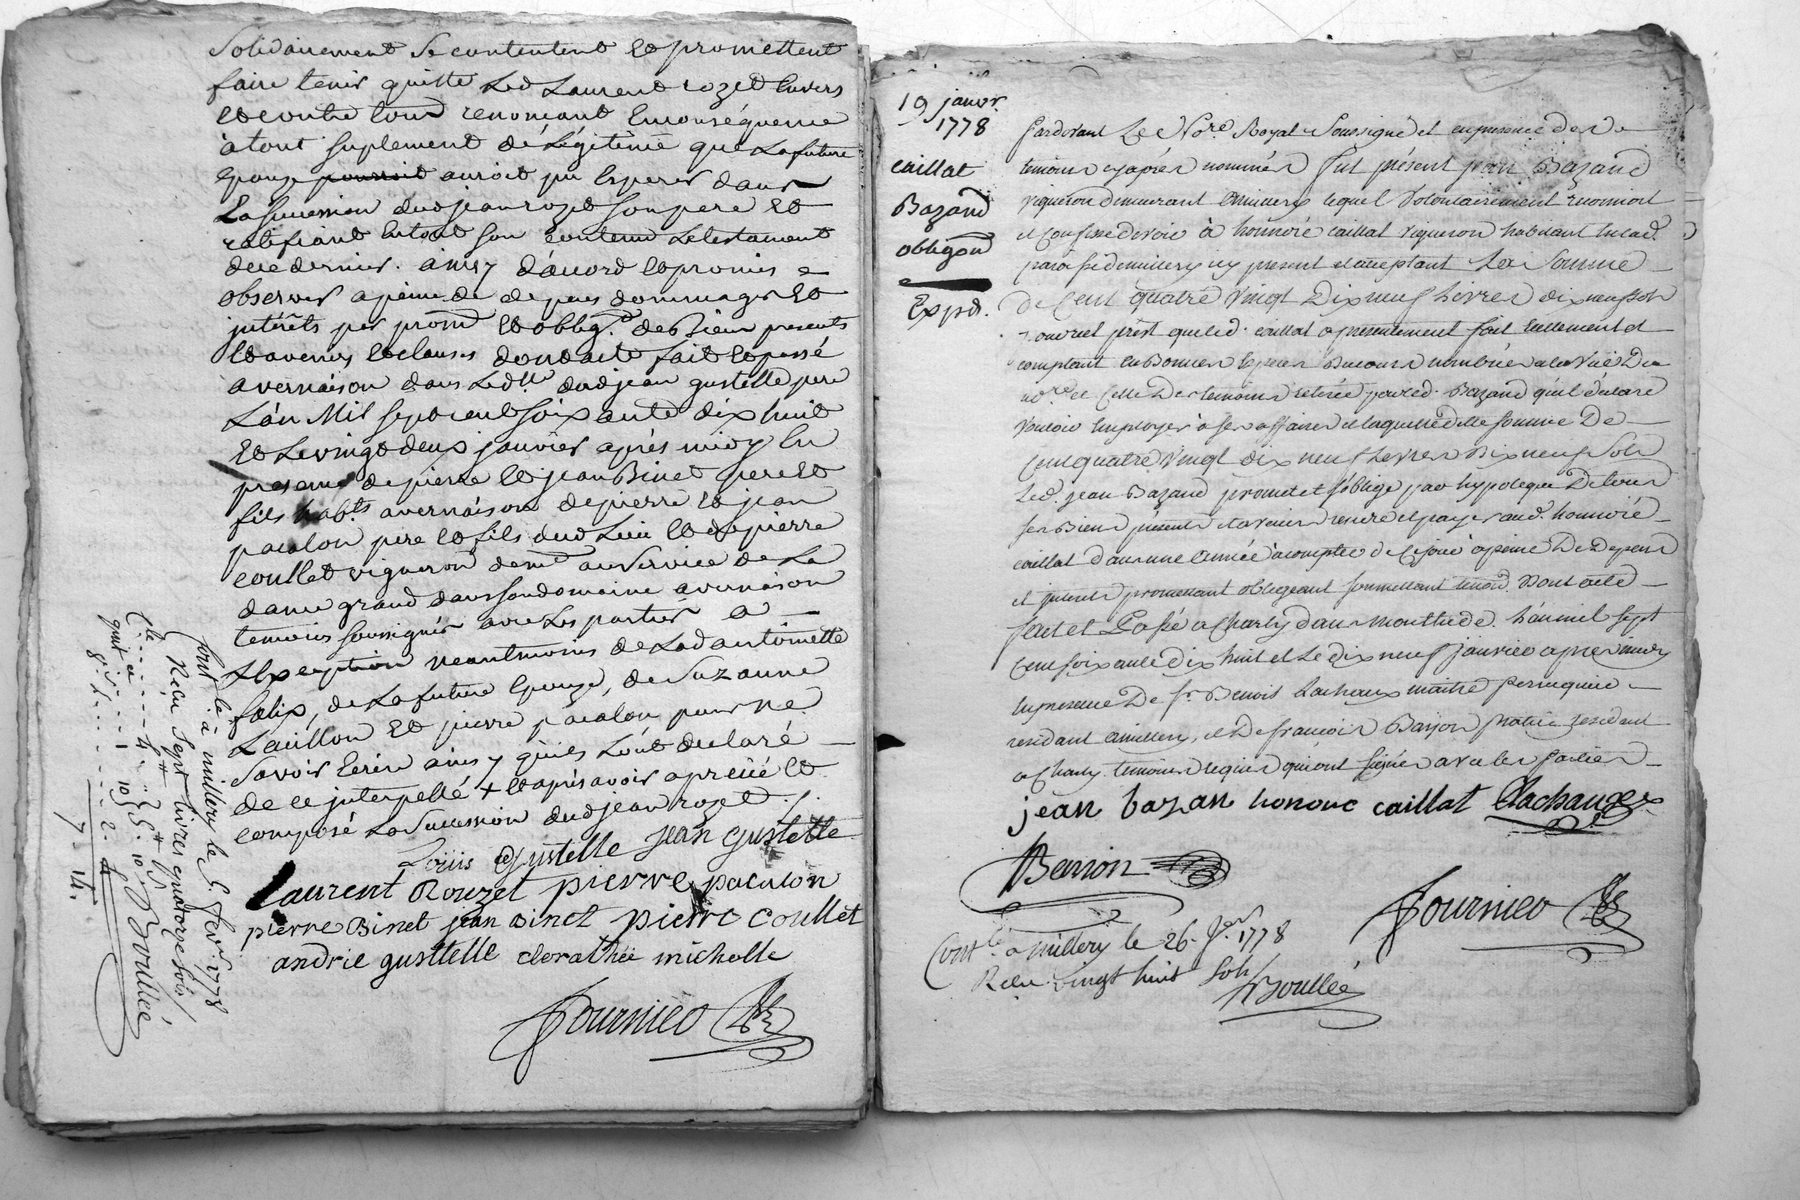 Solidairement Se contentent et promettent
faire tenir quitte Led Laurent rozet Envers
et contre tous renoncant En conséquence
à tout suplement de Légitime que La future
Epouze pourroit auroit pu Esperer dans
La succession dud jean rozet son pere et
ratifiant En tout son contenu Le testament
de ce dernier. ainsy d'acord et promis
observer a peine de depens dommages et
jntérêts par prom et oblig.on de Bien presents
et avenirs et clauses dont acte fait et passé
a vernaison dans Led.lle dud jean gustelle pere
L'an Mil sept cent soixante dix huit
et Le vingt deux janvier après midy En
presence de pierre et jean Binet pere et
fils hab.ts a vernaison de pierre et jean
pacalon pere et fils dud Lieu et de pierre
coullet vigneron dem.t au Service de La
dame grand dans son domaine a vernaison
temoins soussignés avec Les parties a
L'Exception neantmoins de Lad antoinette
falix, de La future Epouze, de Suzanne
Lauillon et pierre pacalon pour ne
Savoir Ecrire ainsy qu'ils L'ont declaré
de ce jnterpellé + et après avoir aprecié et
composé La Succession dud jean rozet ./.
Loüis Gustelle Jean Gustelle
Laurent Rouzet pierre pacalon
pierre Binet jean Binet pierre coullet
andrie gusttelle clerathée micholle
fournier
Cont.lé à millery le 5. fev.r 1778
Reçu Sept livres quatorze sols
Boullée
C.le . . . . . 4.
7. 14.
19 janvr.
1778
caillat
Bazand
obligaõn
Expd.
Pardevant Le No.re Royal Soussigné et en presence des
temoins cy après nommés fut présent jean Bazand
vigneron demeurant a millery lequel Volontairement reconnoit
et confesse devoir à honnoré caillat vigneron habitant En lad.
paroisse de millery cy present et acceptant La Somme
de Cent quatre Vingt Dix neuf Livres dix neuf sols
pour vrai prêt que led. caillat a presentement fait réellement et
comptant En Bonnes Especes Du cours nombrées a la Vüe Du
no.re et Celle Des temoins retirée par led. Bazand qu'il déclare
Vouloir Employer à ses affaires et laquelle dite somme De
Cent quatre Vingt dix neuf Livres Dix neuf Sols
Led. jean Bazand promet et s'oblige par hypoteque De tous
ses Biens présents et avenir rendre et payer aud. honnoré
caillat dans une année à compter de Ce jour à peine De Depens
et jnterets promettant obligeant soumettant renonc. Dont acte
fait et Passé a Charly dans mon Etude. L'an mil sept
cent soixante dix huit et Le dix neuf janvier après midy
En presence De s.r Benoit Lachaux maitre Perruquier
residant a millery, et De francois Barjon Praticien residant
a Charly temoins requis qui ont signés avec les Parties
jean bazan honoré caillat Lachaux
Berion
fournier
Cont.lé à millery le 26. Jr. 1778
Reçu vingt huit sols
Boullée